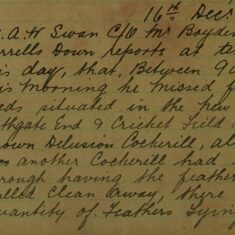 16th Decr
. A. W Swan C/o Mr Boyden
rrells Down reports as
is day, that, Between 9
is morning he missed f
eds situated in the new
thgate End & Cricket Field
rown Cockerill, al
another Cockerill had
rough having the feather
lled Clean away, there
uantity of Feathers lying